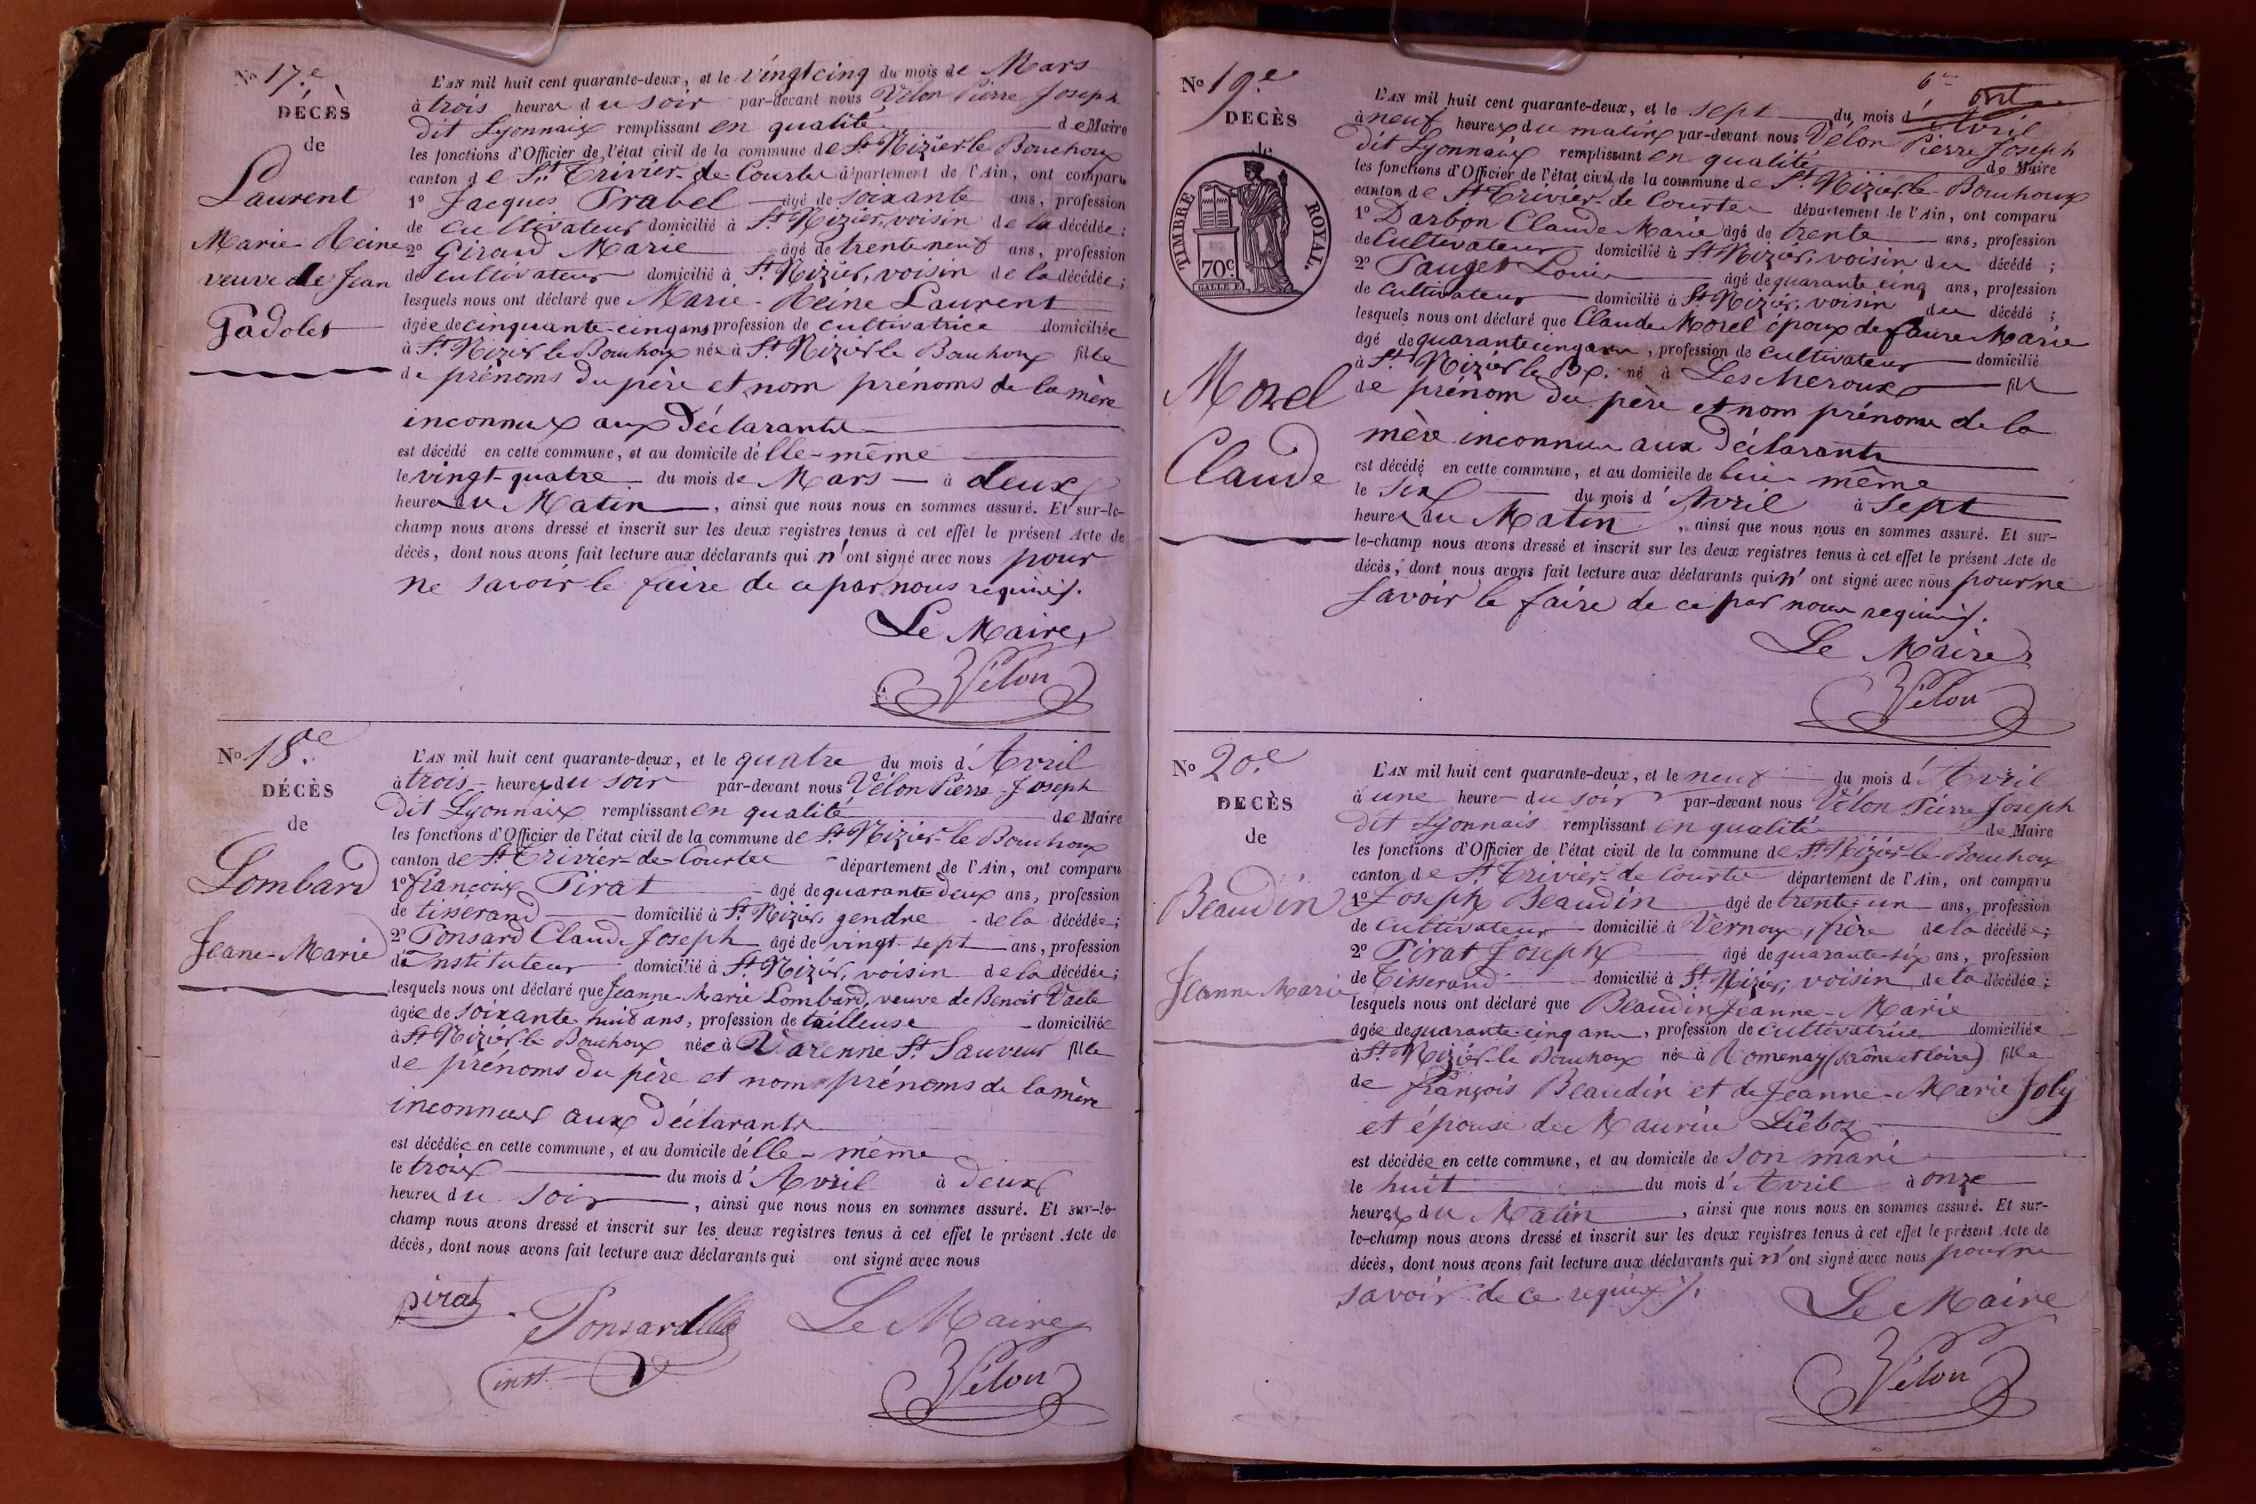 No 17.e
DÉCÈS
de
Laurent
Marie Reine
veuve de Jean
Padolet
L'AN mil huit cent quarante-deux, et le vingt cinq du mois de Mars
à trois heures du soir par-devant nous Vélon Pierre Joseph
dit Lyonnais remplissant en qualité de Maire
les fonctions d'Officier de l'état civil de la commune de St Nizier le Bouchoux
canton de St Trivier-de-Courtes département de l'Ain, ont comparu
1º Jacques Pravel âgé de soixante ans, profession
de Cultivateur domicilié à St Nizier, voisin de la décédée;
2º Giraud Marie âgé de trente neuf ans, profession
de cultivateur domicilié à St Nizier, voisin de la décédée;
lesquels nous ont déclaré que Marie-Reine Laurent
âgée de cinquante-cinq ans profession de cultivatrice domiciliée
à St Nizier le Bouchoux née à St Nizier le Bouchoux fille
de prénoms du père et nom prénoms de la mère
inconnus aux Déclarants
est décédé en cette commune, et au domicile d'elle-même
le vingt-quatre du mois de Mars à deux
heures du Matin, ainsi que nous nous en sommes assuré. Et sur-le-
champ nous avons dressé et inscrit sur les deux registres tenus à cet effet le présent Acte de
décès, dont nous avons fait lecture aux déclarants qui n'ont signé avec nous pour
ne savoir le faire de ce par nous requis.
Le Maire
Vélon
No 18.e
DÉCÈS
de
Lombard
Jeane-Marie
L'AN mil huit cent quarante-deux, et le quatre du mois d'Avril
à trois heures du soir par-devant nous Vélon Pierre-Joseph
dit Lyonnais remplissant en qualité de Maire
les fonctions d'Officier de l'état civil de la commune de St Nizier-le Bouchoux
canton de St Trivier-de-Courtes département de l'Ain, ont comparu
1º françois Pirat âgé de quarante deux ans, profession
de tisserand domicilié à St Nizier, gendre de la décédée;
2º Ponsard Claude Joseph âgé de vingt-sept ans, profession
d'Instituteur domicilié à St Nizier, voisin de la décédée;
lesquels nous ont déclaré que Jeanne-Marie Lombard, veuve de Benoit Vacle
âgée de soixante-huit ans, profession de tailleuse domiciliée
à St Nizier le Bouchoux née à Varenne St Sauveur fille
de prénoms du père et nom prénoms de la mère
inconnus aux Déclarants
est décédée en cette commune, et au domicile d'elle-même
le trois du mois d'Avril à deux
heures du soir, ainsi que nous nous en sommes assuré. Et sur-le-
champ nous avons dressé et inscrit sur les deux registres tenus à cet effet le présent Acte de
décès, dont nous avons fait lecture aux déclarants qui ont signé avec nous
pirat
Ponsard
inst.
Le Maire
Vélon
No 19.e
DECÈS
de
TIMBRE ROYAL.
70c.
Morel
Claude
L'AN mil huit cent quarante-deux, et le sept du mois d'Avril
à neuf heures du matin par-devant nous Vélon Pierre Joseph
dit Lyonnais remplissant en qualité de Maire
les fonctions d'Officier de l'état civil de la commune de St Nizier le-Bouchoux
canton de St Trivier-de Courtes département de l'Ain, ont comparu
1º Darbon Claude Marie âgé de trente ans, profession
de Cultivateur domicilié à St Nizier, voisin du décédé;
2º Pauget Louis âgé de quarante cinq ans, profession
de cultivateur domicilié à St Nizier, voisin du décédé;
lesquels nous ont déclaré que Claude Morel époux de faure Marie
âgé de quarante cinq ans, profession de cultivateur domicilié
à St Nizier le Bx. né à Lescheroux fils
de prénom du père et nom prénoms de la
mère inconnus aux Déclarants
est décédé en cette commune, et au domicile de lui-même
le six du mois d'Avril à sept
heures du Matin, ainsi que nous nous en sommes assuré. Et sur-
le-champ nous avons dressé et inscrit sur les deux registres tenus à cet effet le présent Acte de
décès, dont nous avons fait lecture aux déclarants qui n'ont signé avec nous pour ne
savoir le faire de ce par nous requis.
Le Maire
Vélon
No 20.e
DECÈS
de
Beaudin
Jeanne Marie
L'AN mil huit cent quarante-deux, et le neuf du mois d'Avril
à une heure du soir par-devant nous Vélon Pierre Joseph
dit Lyonnais remplissant en qualité de Maire
les fonctions d'Officier de l'état civil de la commune de St Nizier-le-Bouchoux
canton de St Trivier-de Courtes département de l'Ain, ont comparu
1º Joseph Beaudin âgé de trente-un ans, profession
de Cultivateur domicilié à Vernoux, frère de la décédée;
2º Pirat Joseph âgé de quarante-six ans, profession
de Tisserand domicilié à St Nizier, voisin de la décédée;
lesquels nous ont déclaré que Beaudin Jeanne-Marie
âgée de quarante-cinq ans, profession de cultivatrice domiciliée
à St Nizier-le Bouchoux née à Romenay (saône et loire) fille
de françois Beaudin et de Jeanne-Marie Joly
et épouse de Maurice Liébox
est décédée en cette commune, et au domicile de son mari
le huit du mois d'Avril à onze
heures du Matin, ainsi que nous nous en sommes assuré. Et sur-
le-champ nous avons dressé et inscrit sur les deux registres tenus à cet effet le présent Acte de
décès, dont nous avons fait lecture aux déclarants qui n'ont signé avec nous pour ne
savoir de ce requis.
Le Maire
Vélon